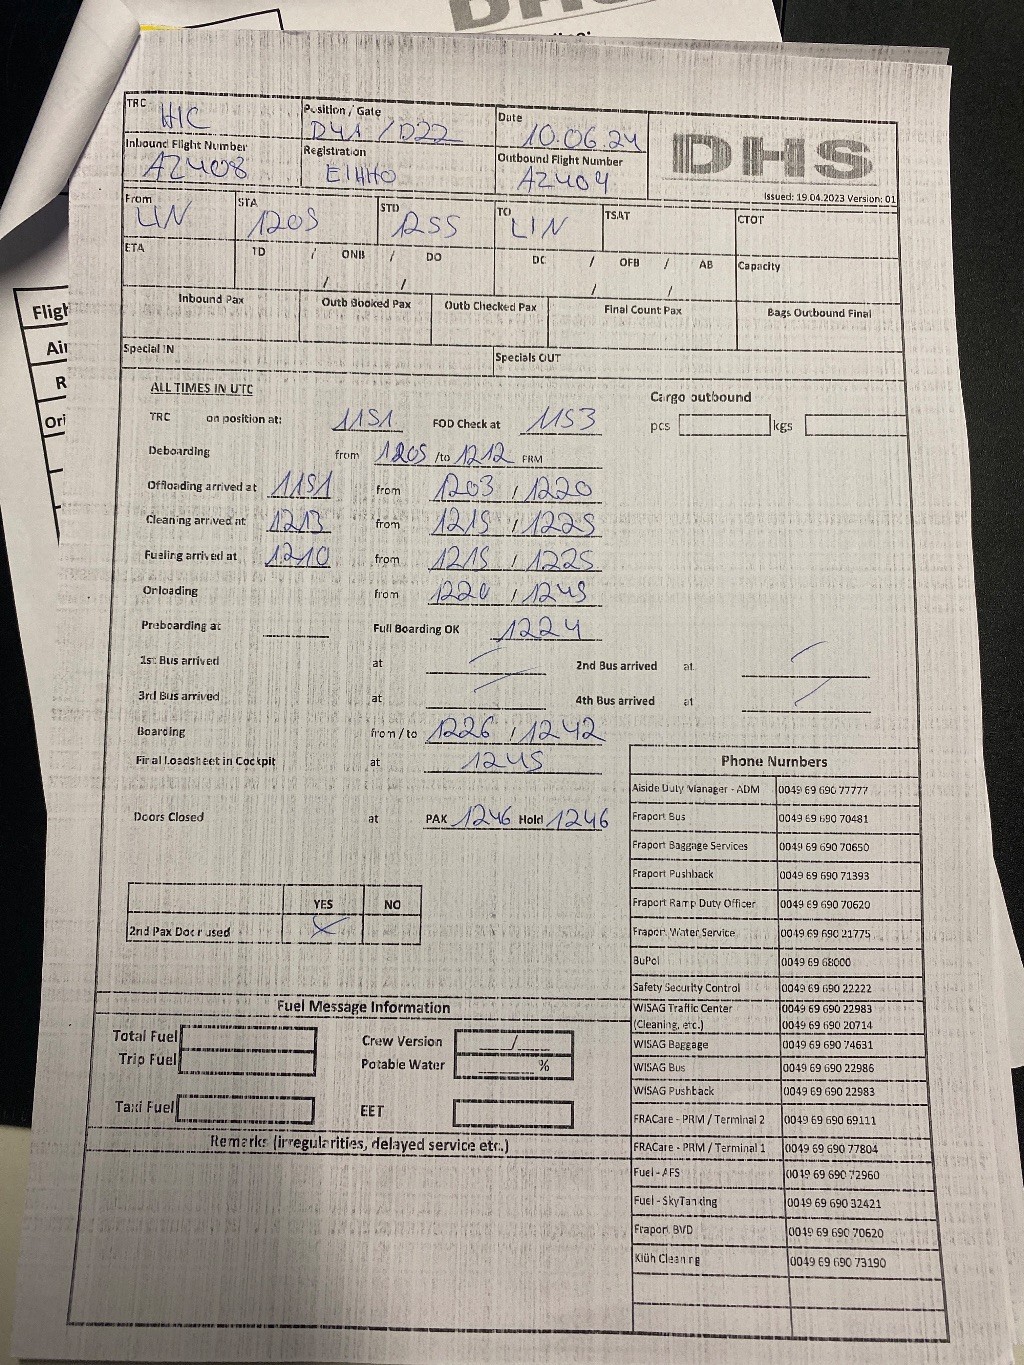 DHS
TRC HIC Position / Gate D41 / D22 Date 10.06.24
DHS
Inbound Flight Number AZ408 Registration EIHHO Outbound Flight Number AZ404
Issued: 19.04.2023 Version: 01
From LIN STA 1205 STD 1255 TO LIN TSAT CTOT
ETA TD / ONB / DO DC / OFB / AB Capacity
/ / / /
Inbound Pax Outb Booked Pax Outb Checked Pax Final Count Pax Bags Outbound Final
Special IN Specials OUT
ALL TIMES IN UTC Cargo outbound
TRC on position at: 1151 FOD Check at 1153 pcs kgs
Deboarding from 1205 /to 1212 PRM
Offloading arrived at 1151 from 1203 / 1220
Cleaning arrived at 1213 from 1215 / 1225
Fueling arrived at 1210 from 1215 / 1225
Onloading from 1220 / 1245
Preboarding at Full Boarding OK 1224
1st Bus arrived at / 2nd Bus arrived at /
3rd Bus arrived at / 4th Bus arrived at /
Boarding from / to 1226 / 1242
Final Loadsheet in Cockpit at 1245
Doors Closed at PAX 1246 Hold 1246
YES NO
2nd Pax Door used X
Fuel Message Information
Total Fuel Crew Version /
Trip Fuel Potable Water %
Taxi Fuel EET
Remarks (irregularities, delayed service etc.)
Phone Numbers
Aiside Duty Manager - ADM 0049 69 690 77777
Fraport Bus 0049 69 690 70481
Fraport Baggage Services 0049 69 690 70650
Fraport Pushback 0049 69 690 71393
Fraport Ramp Duty Officer 0049 69 690 70620
Fraport Water Service 0049 69 690 21775
BuPol 0049 69 68000
Safety Security Control 0049 69 690 22222
WISAG Traffic Center 0049 69 690 22983
(Cleaning, etc.) 0049 69 690 20714
WISAG Baggage 0049 69 690 74631
WISAG Bus 0049 69 690 22986
WISAG Pushback 0049 69 690 22983
FRACare - PRM / Terminal 2 0049 69 690 69111
FRACare - PRM / Terminal 1 0049 69 690 77804
Fuel - AFS 0049 69 690 72960
Fuel - SkyTanking 0049 69 690 32421
Fraport BVD 0049 69 690 70620
Klüh Cleaning 0049 69 690 73190
Fligh
Air
R
Ori